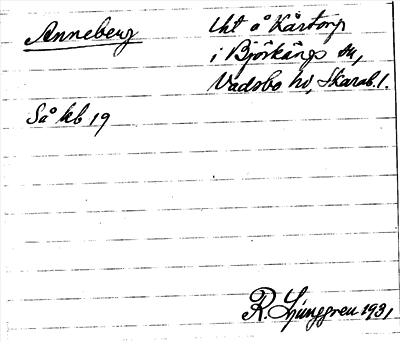 Anneberg
Uht å Kårtorp
i Björkängs sn,
Vadsbo hd, Skarab. l.
Så kb 19
R. Ljunggren 1931